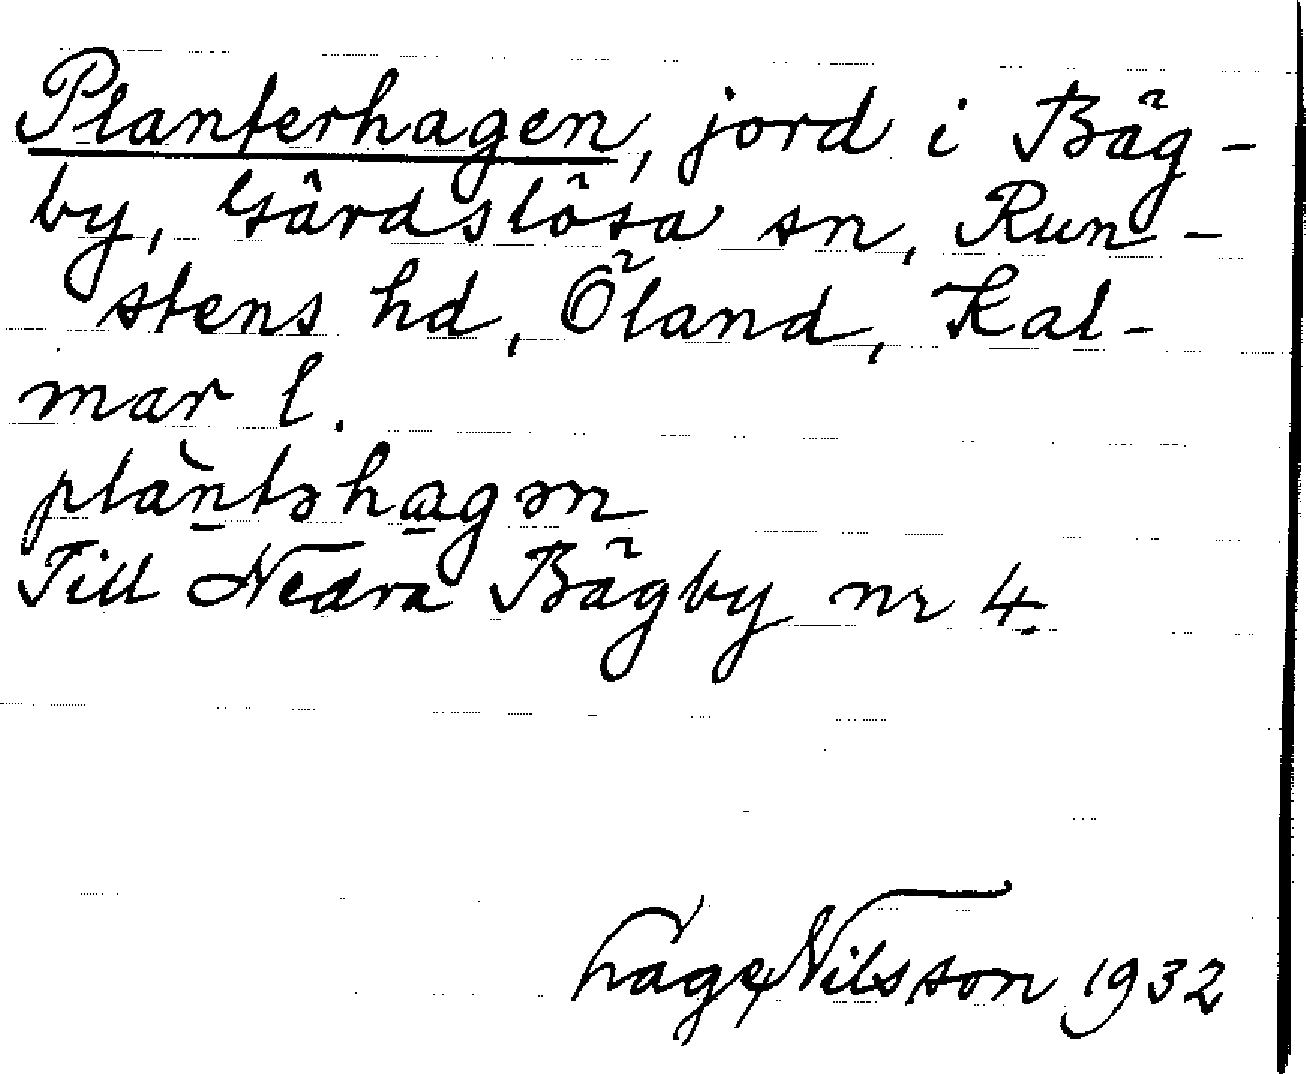 Planterhagen, jord i Bäg-
by, Gärdslösa sn, Run-
stens hd, Öland, Kal-
mar l.
plàntəhagən
Till Nedra Bägby nr 4.
Tage Nilsson 1932